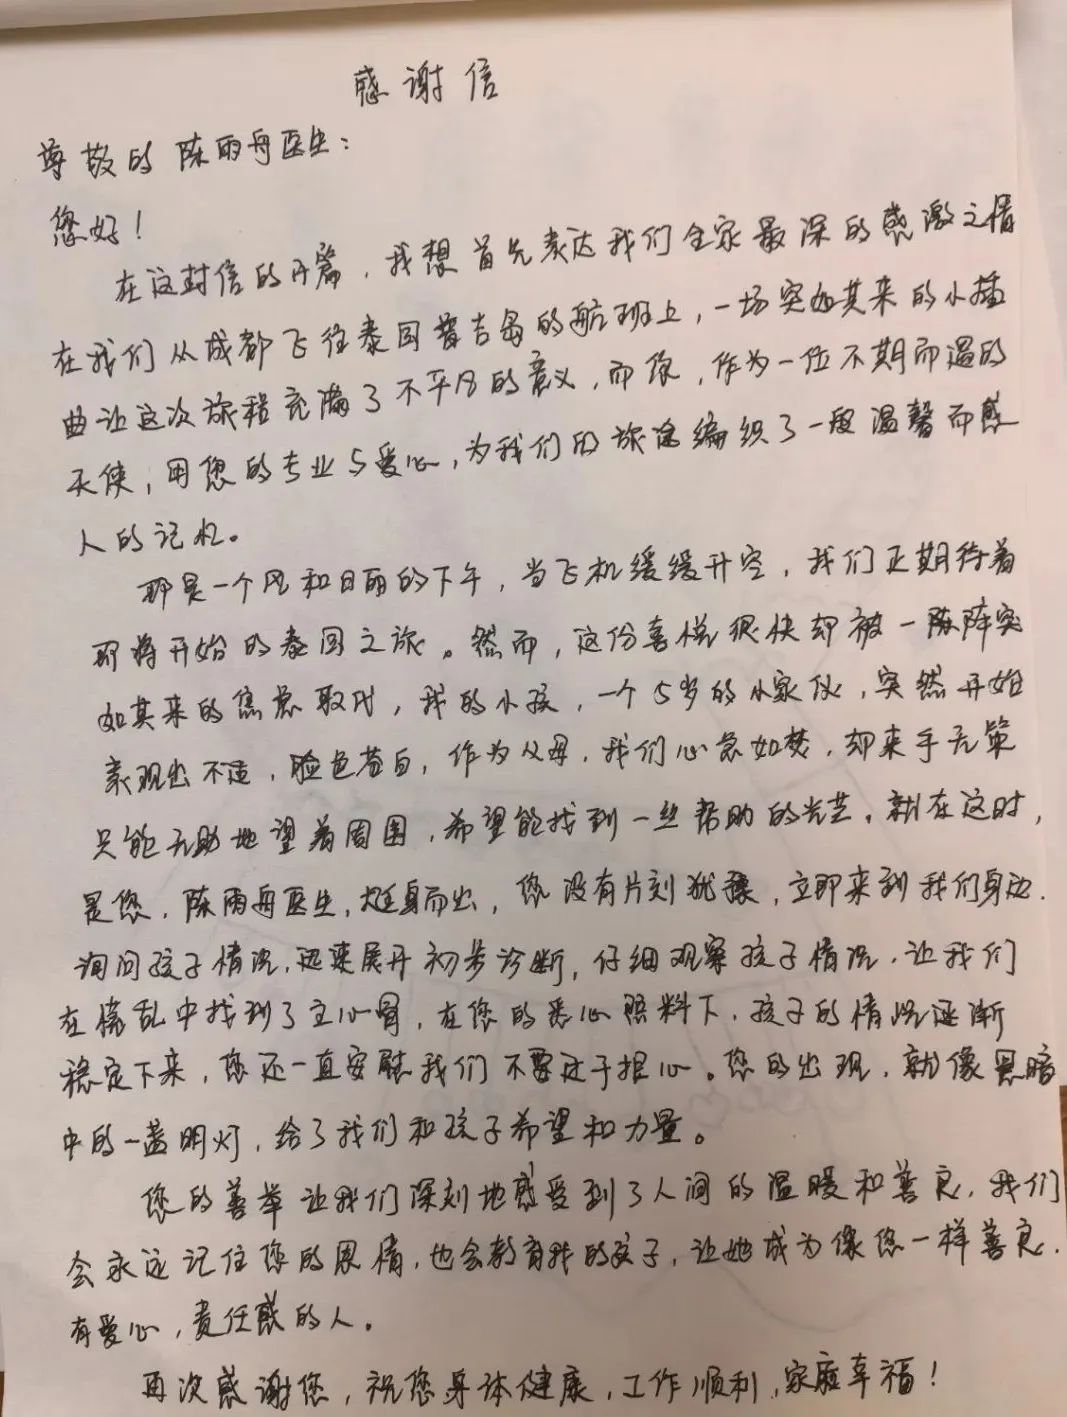 感谢信
尊敬的陈雨舟医生：
您好！
在这封信的开篇，我想首先表达我们全家最深的感激之情
在我们从成都飞往泰国普吉岛的航班上，一场突如其来的小插
曲让这次旅程充满了不平凡的意义，而你，作为一位不期而遇的
天使，用您的专业与爱心，为我们的旅途编织了一段温馨而感
人的记忆。
那是一个风和日丽的下午，当飞机缓缓升空，我们正期待着
即将开始的泰国之旅。然而，这份喜悦很快却被一阵阵突
如其来的焦急取代，我的小孩，一个5岁的小家伙，突然开始
表现出不适，脸色苍白，作为父母，我们心急如焚，却束手无策
只能无助地望着周围，希望能找到一丝帮助的光芒。就在这时，
是您，陈雨舟医生，挺身而出，您没有片刻犹豫，立即来到我们身边.
询问孩子情况，迅速展开初步诊断，仔细观察孩子情况，让我们
在慌乱中找到了主心骨，在您的悉心照料下，孩子的情况逐渐
稳定下来，您还一直安慰我们不要过于担心。您的出现，就像黑暗
中的一盏明灯，给了我们和孩子希望和力量。
您的善举让我们深刻地感受到了人间的温暖和善良，我们
会永远记住您的恩情，也会教育我的孩子，让她成为像您一样善良.
有爱心，责任感的人。
再次感谢您，祝您身体健康，工作顺利，家庭幸福！